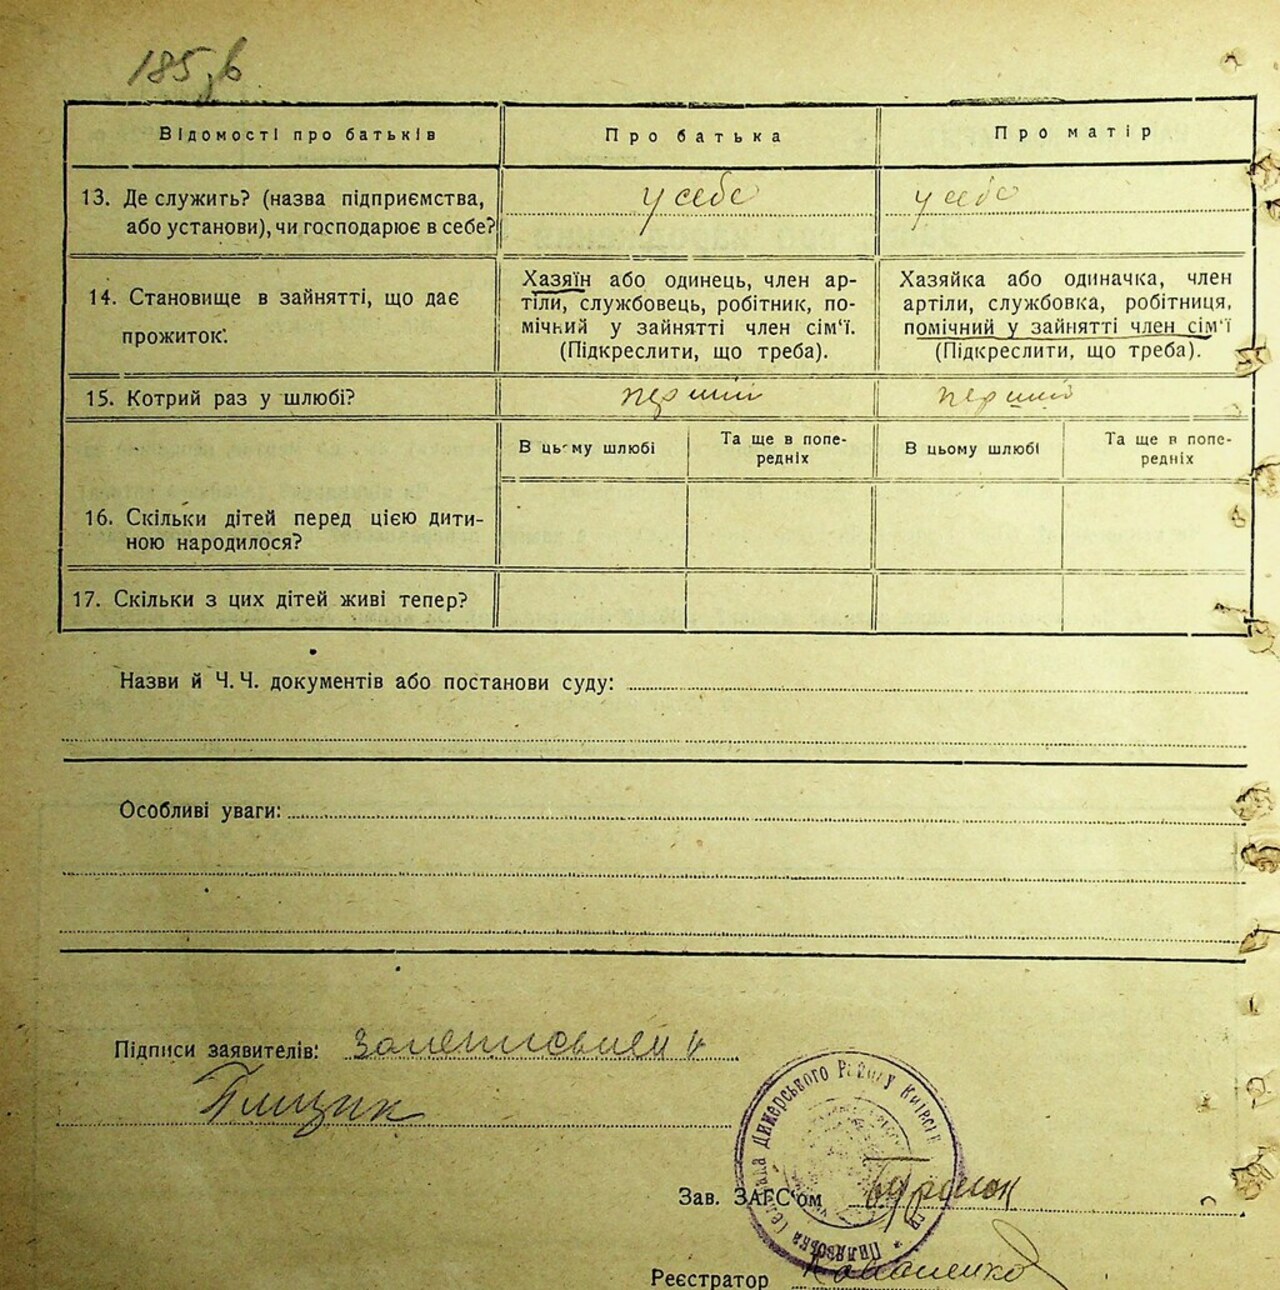 185 в
Відомості про батьків
Про батька
Про матір
13. Де служить? (назва підприємства,
або установи), чи господарює в себе?
у себе
у себе
14. Становище в зайнятті, що дає
прожиток:
Хазяїн або одинець, член ар-
тіли, службовець, робітник, по-
мічний у зайнятті член сім‘ї.
(Підкреслити, що треба).
Хазяйка або одиначка, член
артіли, службовка, робітниця,
помічний у зайнятті член сім‘ї
(Підкреслити, що треба).
15. Котрий раз у шлюбі?
перший
перший
В цьому шлюбі
Та ще в попе-
редніх
В цьому шлюбі
Та ще в попе-
редніх
16. Скільки дітей перед цією дити-
ною народилося?
17. Скільки з цих дітей живі тепер?
Назви й Ч. Ч. документів або постанови суду:
Особливі уваги:
Підписи заявителів:
Зав. ЗАГС‘ом
Димерського Району Київськ
Реєстратор